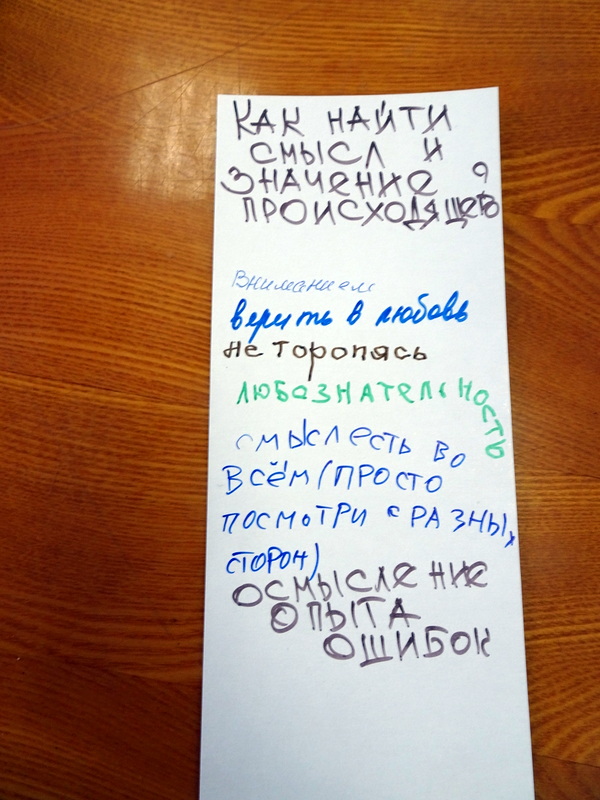 КАК НАЙТИ
СМЫСЛ И
ЗНАЧЕНИЕ
ПРОИСХОДЯЩЕГО?
Вниманием
верить в любовь
не торопясь
ЛЮБОЗНАТЕЛЬНОСТЬ
смысл есть во
всём (просто
посмотри с разных
сторон)
ОСМЫСЛЕНИЕ
ОПЫТА
ОШИБОК